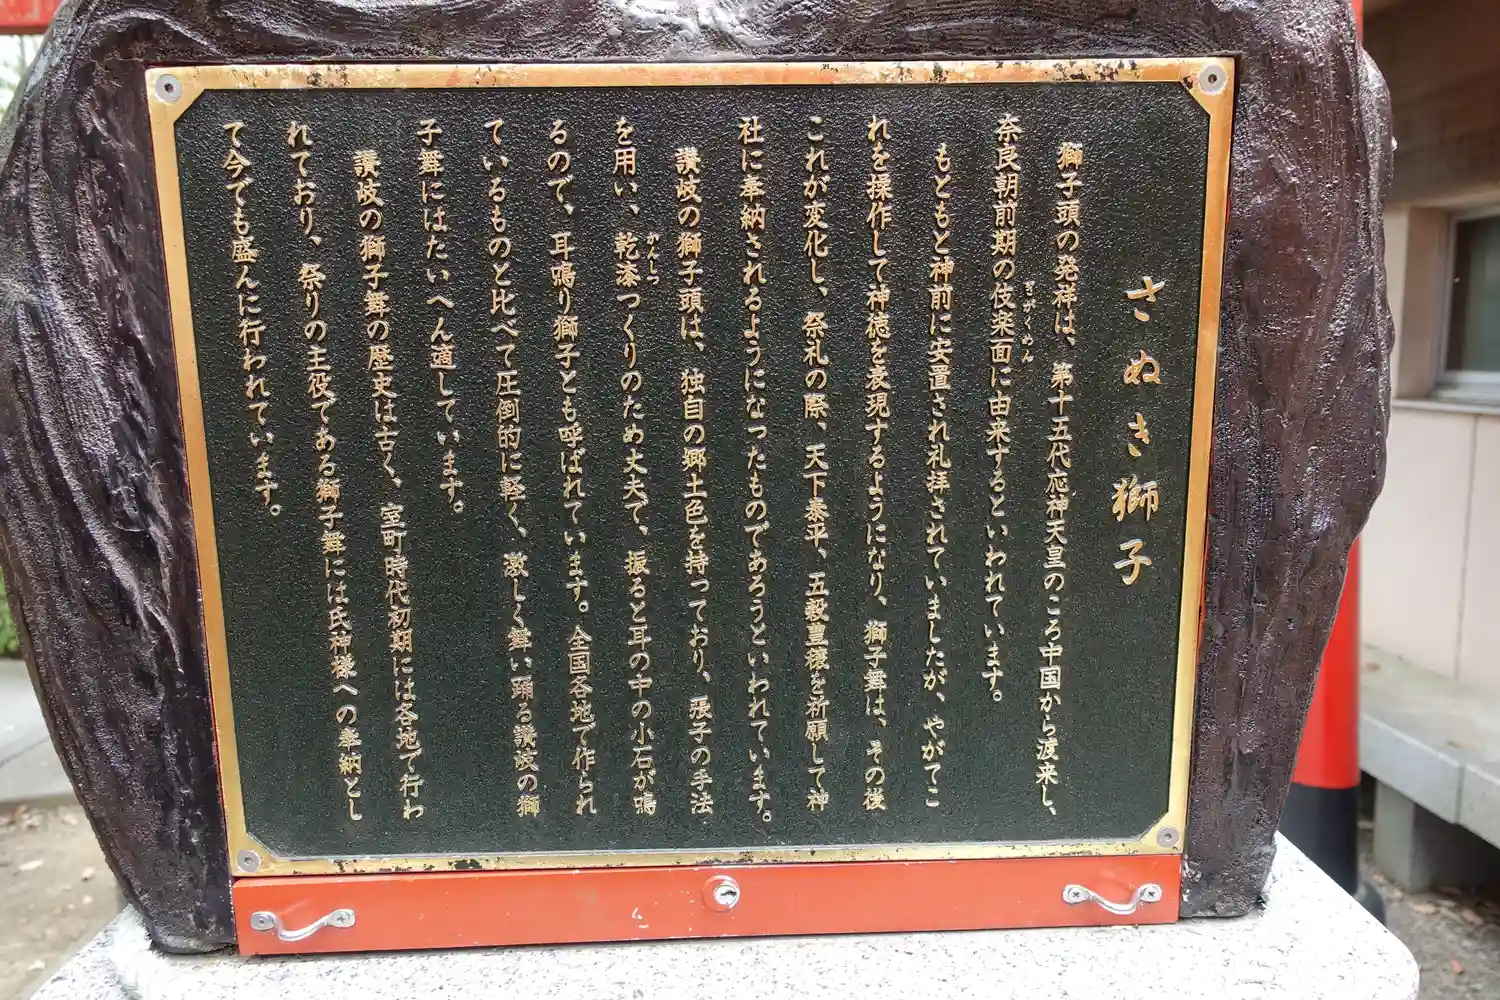 さぬき獅子
獅子頭の発祥は、第十五代応神天皇のころ中国から渡来し、
奈良朝前期の伎楽面に由来するといわれています。
ぎがくめん
もともと神前に安置され礼拝されていましたが、やがてこ
れを操作して神徳を表現するようになり、獅子舞は、その後
これが変化し、祭礼の際、天下泰平、五穀豊穣を祈願して神
社に奉納されるようになったものであろうといわれています。
讃岐の獅子頭は、独自の郷土色を持っており、張子の手法
を用い、乾漆つくりのため丈夫で、振ると耳の中の小石が鳴
かんしつ
るので、耳鳴り獅子とも呼ばれています。全国各地で作られ
ているものと比べて圧倒的に軽く、激しく舞い踊る讃岐の獅
子舞にはたいへん適しています。
讃岐の獅子舞の歴史は古く、室町時代初期には各地で行わ
れており、祭りの主役である獅子舞には氏神様への奉納とし
て今でも盛んに行われています。